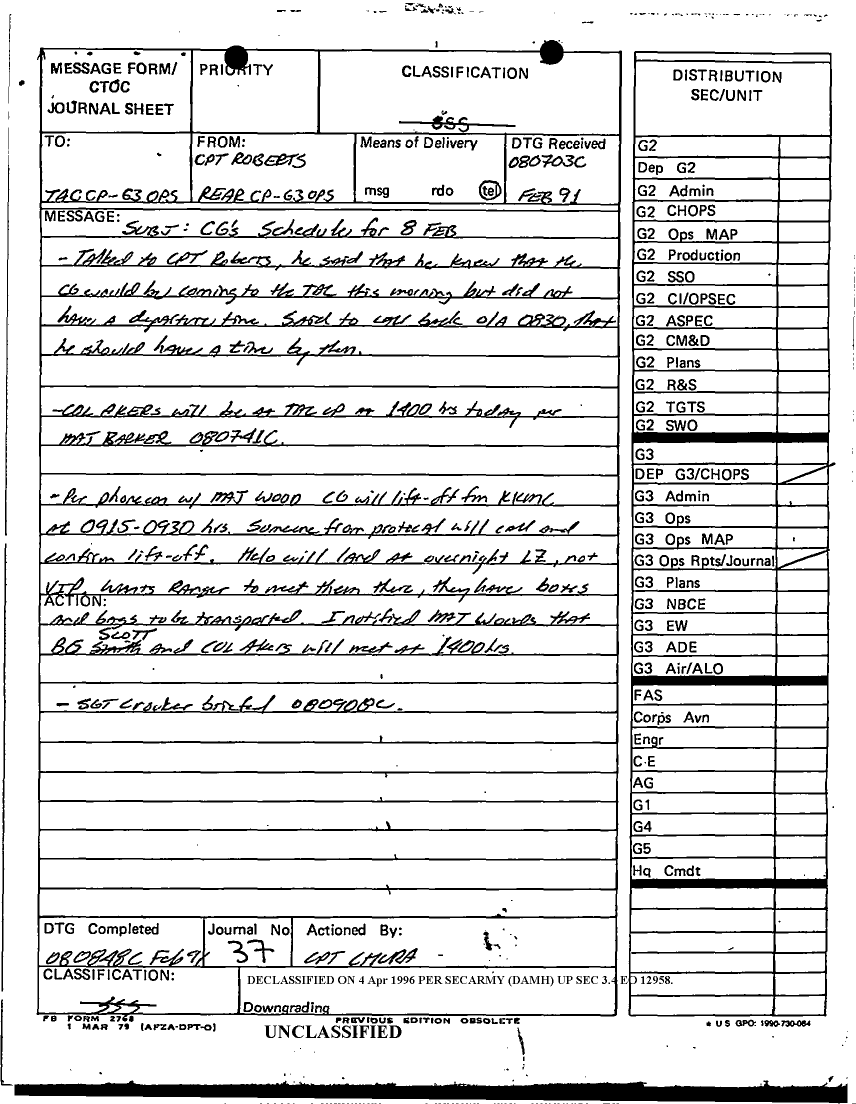 MESSAGE FORM/
CTOC
JOURNAL SHEET
PRIORITY
CLASSIFICATION
SSS
DISTRIBUTION
SEC/UNIT
TO:
TAC CP-G3 OPS
FROM:
CPT ROBERTS
REAR CP-G3 OPS
Means of Delivery
msg rdo tel
DTG Received
080703C
FEB 91
MESSAGE:
SUBJ: CG's Schedule for 8 FEB
- Talked to CPT Roberts, he said that he knew that the
CG would be coming to the TAC this morning but did not
have a departure time. Said to call back o/a 0830, that
he should have a time by then.
- COL AKERS will be at TAC CP at 1400 hrs today per
MAJ BARKER 080741C.
- Per phonecon w/ MAJ WOOD CG will lift-off fm KKMC
at 0915-0930 hrs. Someone from protocal will call and
confirm lift-off. Helo will land at overnight LZ, not
VIP. Wants Ranger to meet them there, they have boxes
ACTION:
and bags to be transported. I notified MAJ Woods that
SCOTT
BG Smith and COL Akers will meet at 1400 hrs.
- SGT Crocker briefed 080908C.
DTG Completed
080848C Feb 91
Journal No
37
Actioned By:
CPT CHURA
CLASSIFICATION:
SSS
DECLASSIFIED ON 4 Apr 1996 PER SECARMY (DAMH) UP SEC 3.4 EO 12958.
Downgrading
FB FORM 2768
1 MAR 79 (AFZA-DPT-O)
PREVIOUS EDITION OBSOLETE
UNCLASSIFIED
G2
Dep G2
G2 Admin
G2 CHOPS
G2 Ops MAP
G2 Production
G2 SSO
G2 CI/OPSEC
G2 ASPEC
G2 CM&D
G2 Plans
G2 R&S
G2 TGTS
G2 SWO
G3
DEP G3/CHOPS
G3 Admin
G3 Ops
G3 Ops MAP
G3 Ops Rpts/Journal
G3 Plans
G3 NBCE
G3 EW
G3 ADE
G3 Air/ALO
FAS
Corps Avn
Engr
C-E
AG
G1
G4
G5
Hq Cmdt
* U S GPO: 1990-730-084